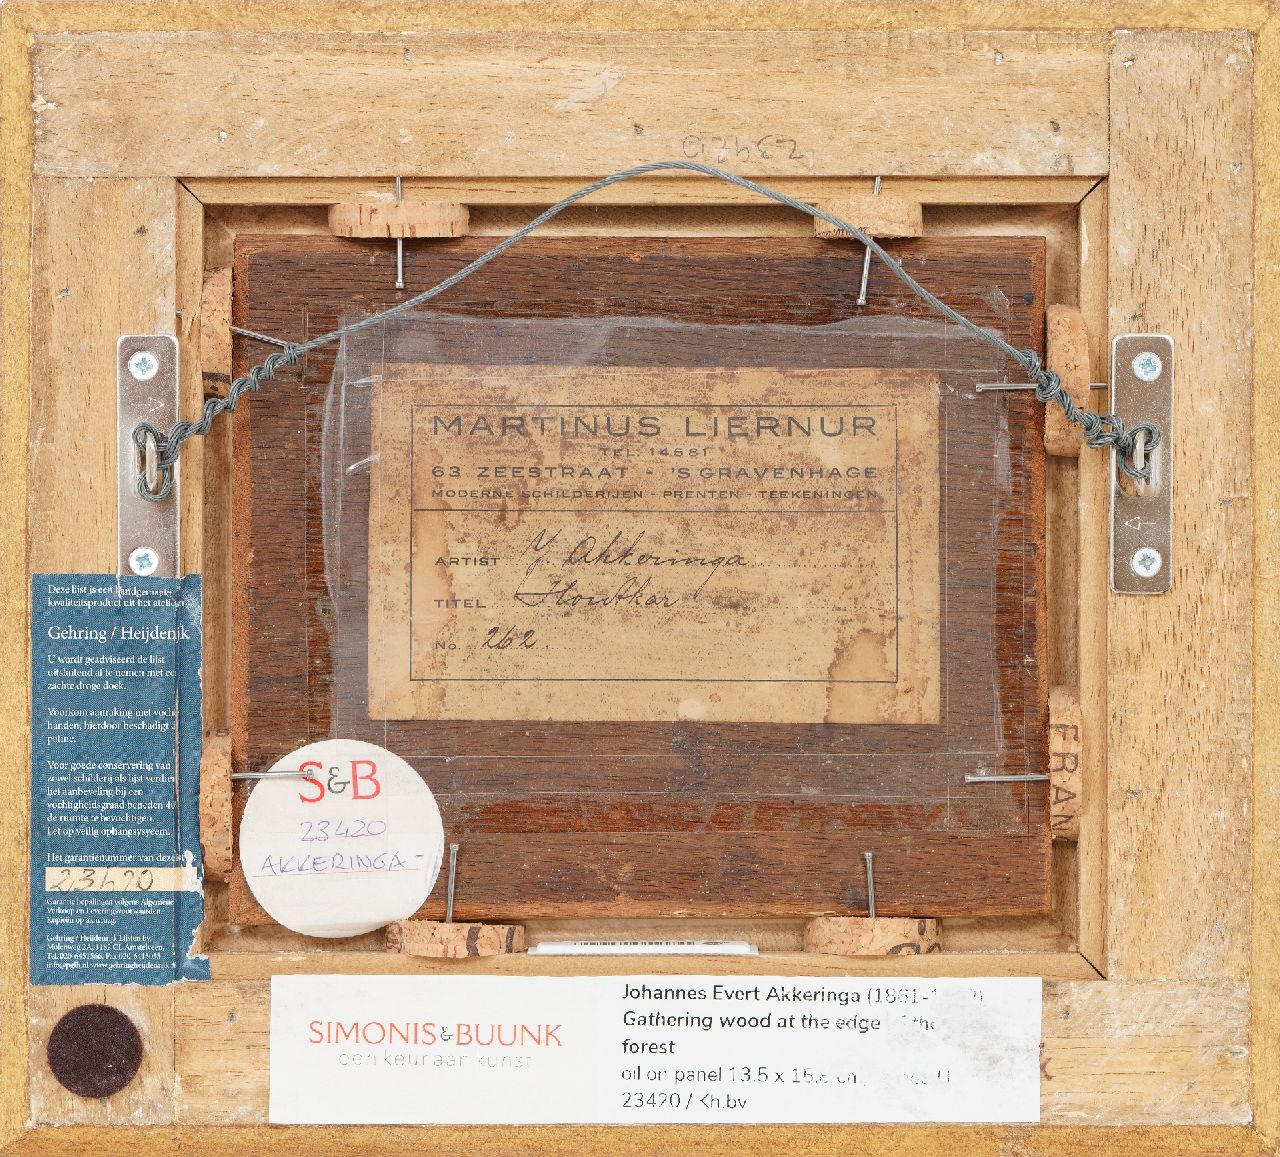 23420
MARTINUS LIERNUR
TEL. 14681
63 ZEESTRAAT - 'S GRAVENHAGE
MODERNE SCHILDERIJEN - PRENTEN - TEEKENINGEN
ARTIST Y. Akkeringa
TITEL Houtkar
No. 262
Deze lijst is een handgemaakt
kwaliteitsproduct uit het atelier
Gehring / Heijdenijk
U wordt geadviseerd de lijst
uitsluitend af te nemen met
zachte droge doek.
Voorkom aanraking met
handen, hierdoor beschadigt
patine.
Voor goede conservering van
zowel schilderij als lijst
het aanbeveling bij een
vochtigheidsgraad beneden
de ruimte te bevochtigen.
Let op veilig ophangsysteem.
Het garantienummer van deze
23420
Garantie bepalingen volgens Algemene
Verkoop en Leveringsvoorwaarden.
Kopieën op aanvraag.
Gehring / Heijdenrijk Lijsten bv.
Molenweg 2A, 1182 CL Amstelveen,
Tel. 020 6451566, Fax 020
www.gehringheijdenrijk
S&B
23420
AKKERINGA-
FRAN
SIMONIS&BUUNK
een keur aan kunst
Johannes Evert Akkeringa (1861-
Gathering wood at the edge of the
forest
oil on panel 13.5 x
23420 / Kh.bv